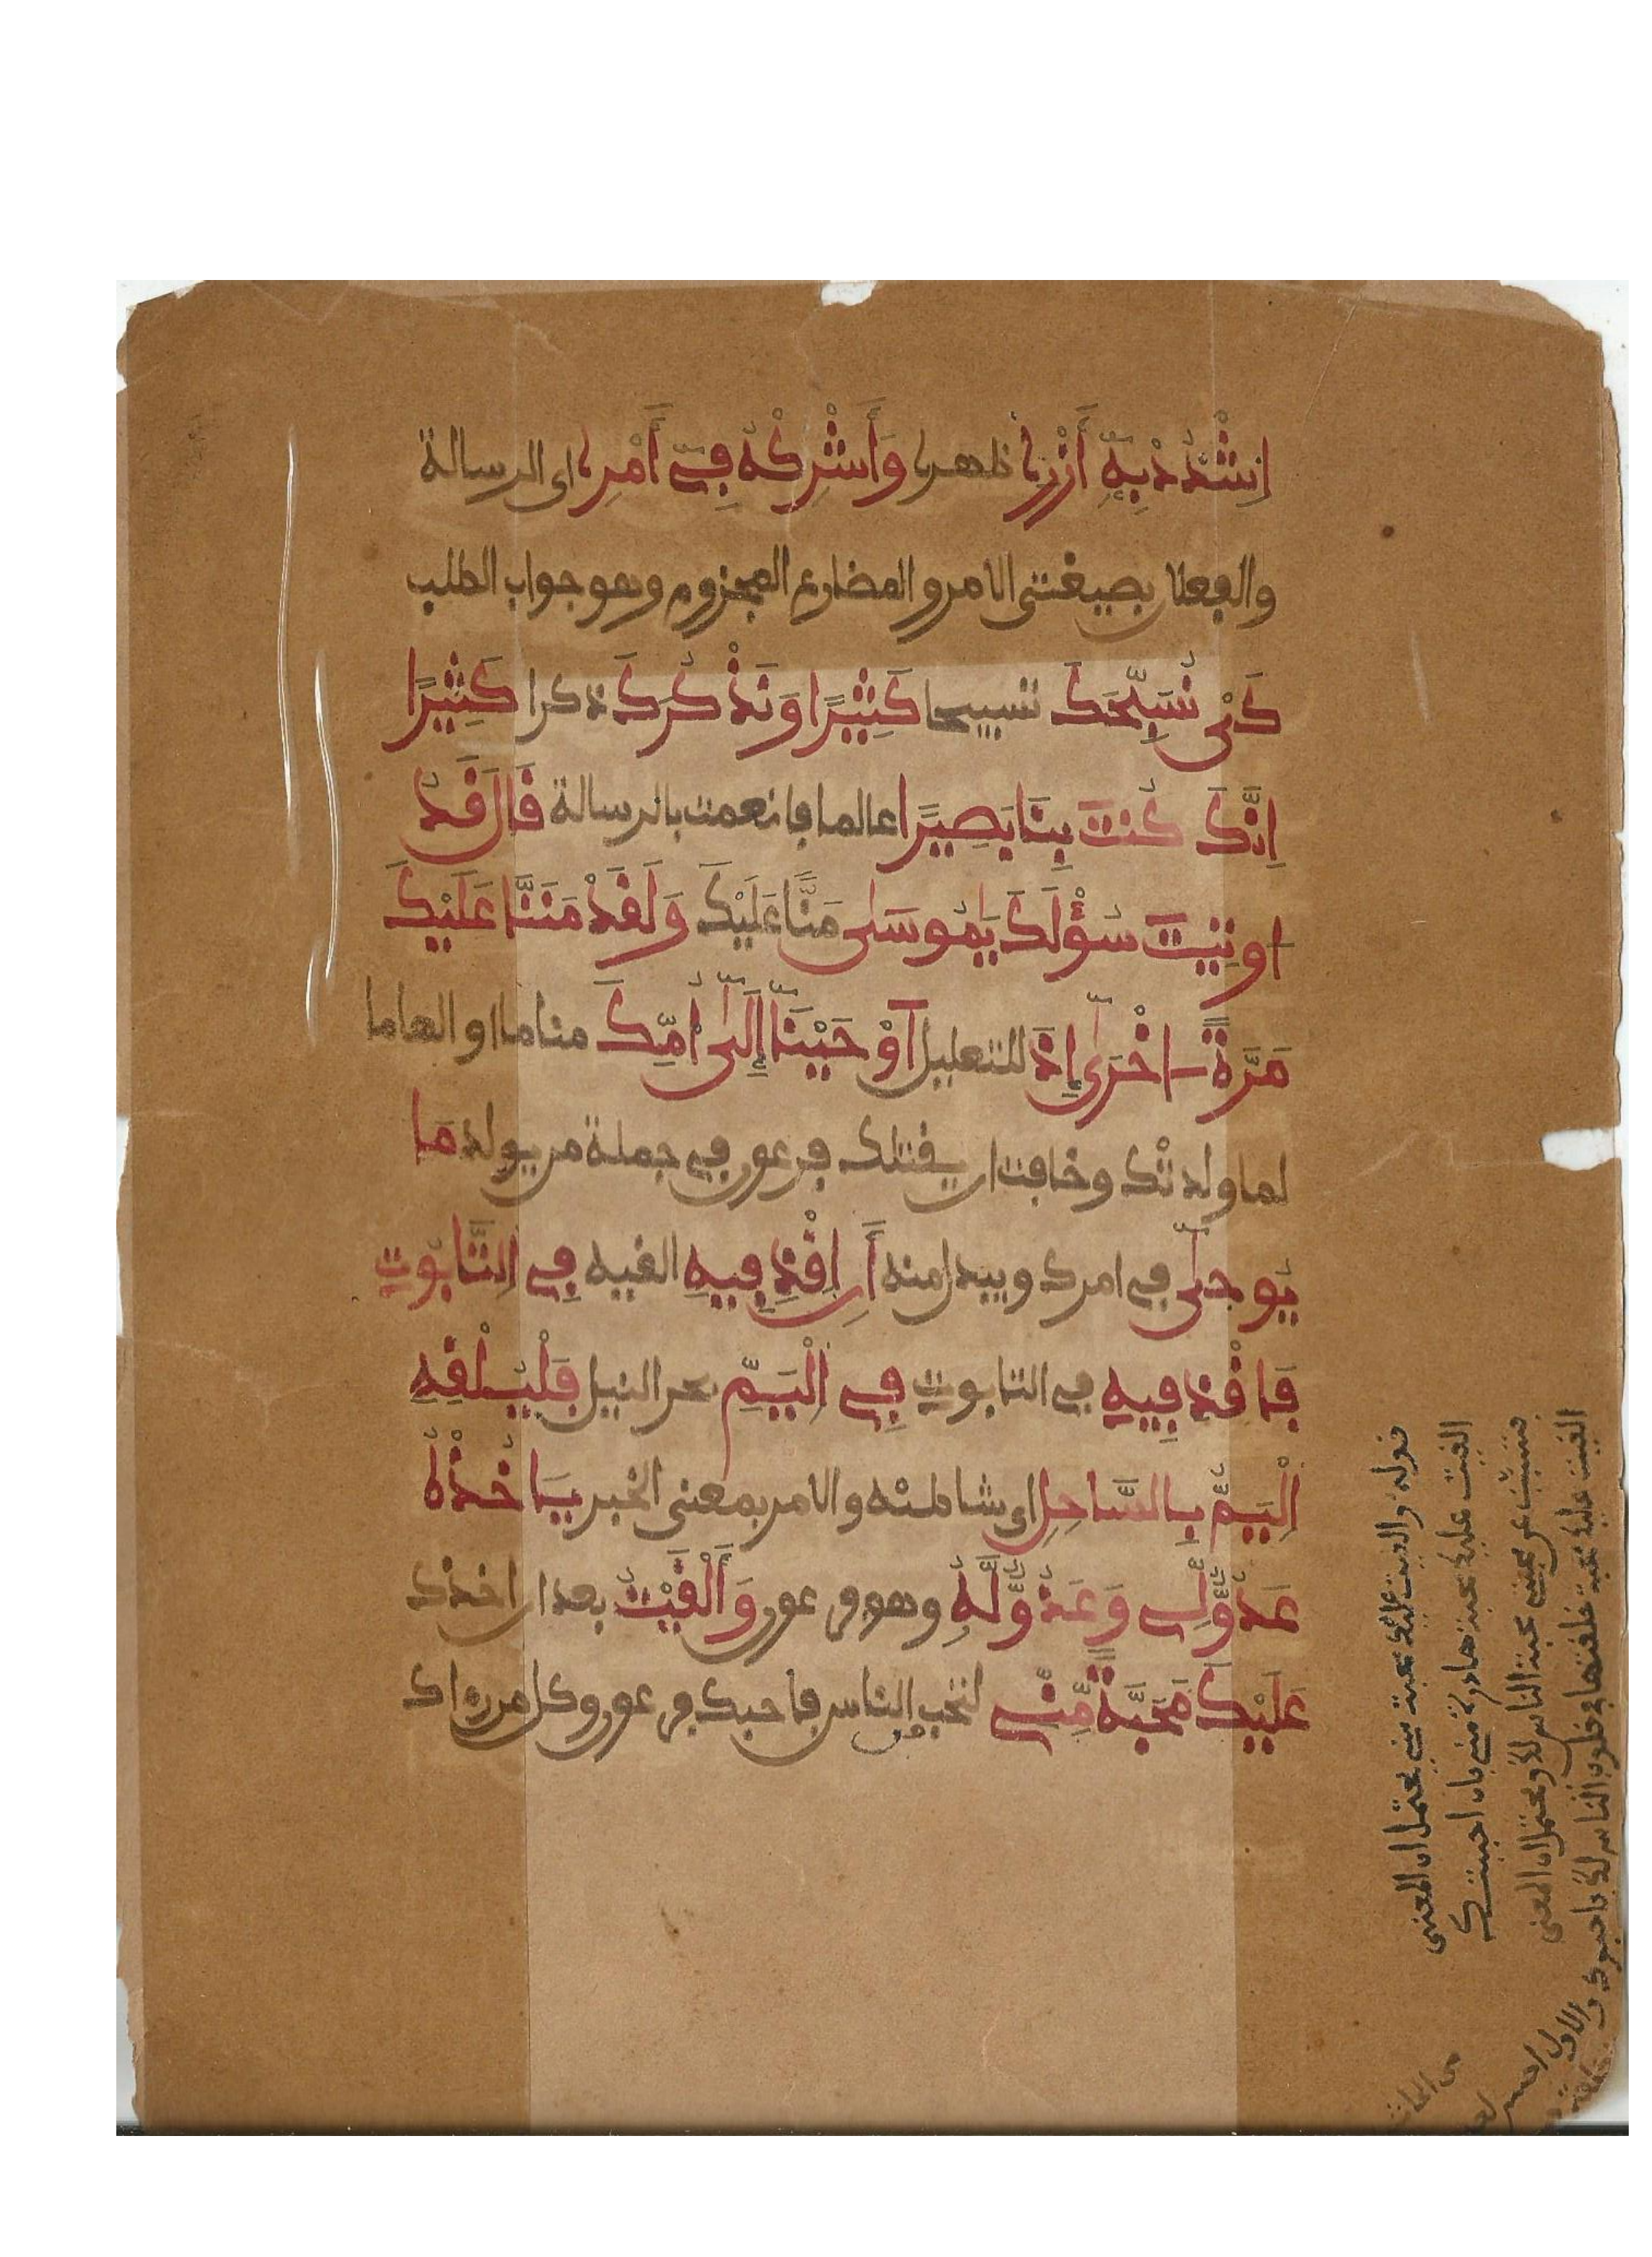 اِشْدُدْ بِهِۦٓ أَزْرِى ظهرى وَأَشْرِكْهُ فِىٓ أَمْرِى اى الرسالة
والفعلان بصيغتى الامر والمضارع المجزوم وهو جواب الطلب
كَىْ نُسَبِّحَكَ تسبيحا كَثِيرًا وَنَذْكُرَكَ ذكرا كَثِيرًا
اِنَّكَ كُنتَ بِنَا بَصِيرًا عالما فانعمت بالرسالة قَالَ قَدُ
اوتِيتَ سُؤْلَكَ يَٰمُوسَىٰ مَنًّا عَلَيْكَ وَلَقَدْ مَنَنَّا عَلَيْكَ
مَرَّةً اخْرَىٰٓ إِذَ للتعليل اَوْحَيْنَآ إِلَىٰٓ أُمِّكَ مناما او الهاما
لما ولدتك وخافت ان يقتلك فرعون فى جملة من يولد مَا
يُوحَىٰٓ فى امرك ويبدل منه أَنِ اِقْذِفِيهِ القيه فِى اِلتَّابُوتِ
فَاقْذِفِيهِ فى التابوت فِى اِلْيَمِّ بحر النيل فَلْيُلْقِهِ
اِلْيَمُّ بِالسَّاحِلِ اى شاطئه والامر بمعنى الخبر يَاخُذْهُ
عَدُوٌّ لِّى وَعَدُوٌّ لَّهُۥ وهو فرعون وَأَلْقَيْتُ بعد ان اخذك
عَلَيْكَ مَحَبَّةً مِّنِّى لتحب من الناس فاحبك فرعون وكل من رءاك
قوله والقيت عليك محبة منى يحتمل ان المعنى
القيت عليك محبة صادرة منى بان احببتك
فتسبب عن محبتى محبة الناس لك ويحتمل ان المعنى
القيت عليك محبة خلقتها فى قلوب الناس لك فاحبوك و
الاول احسن